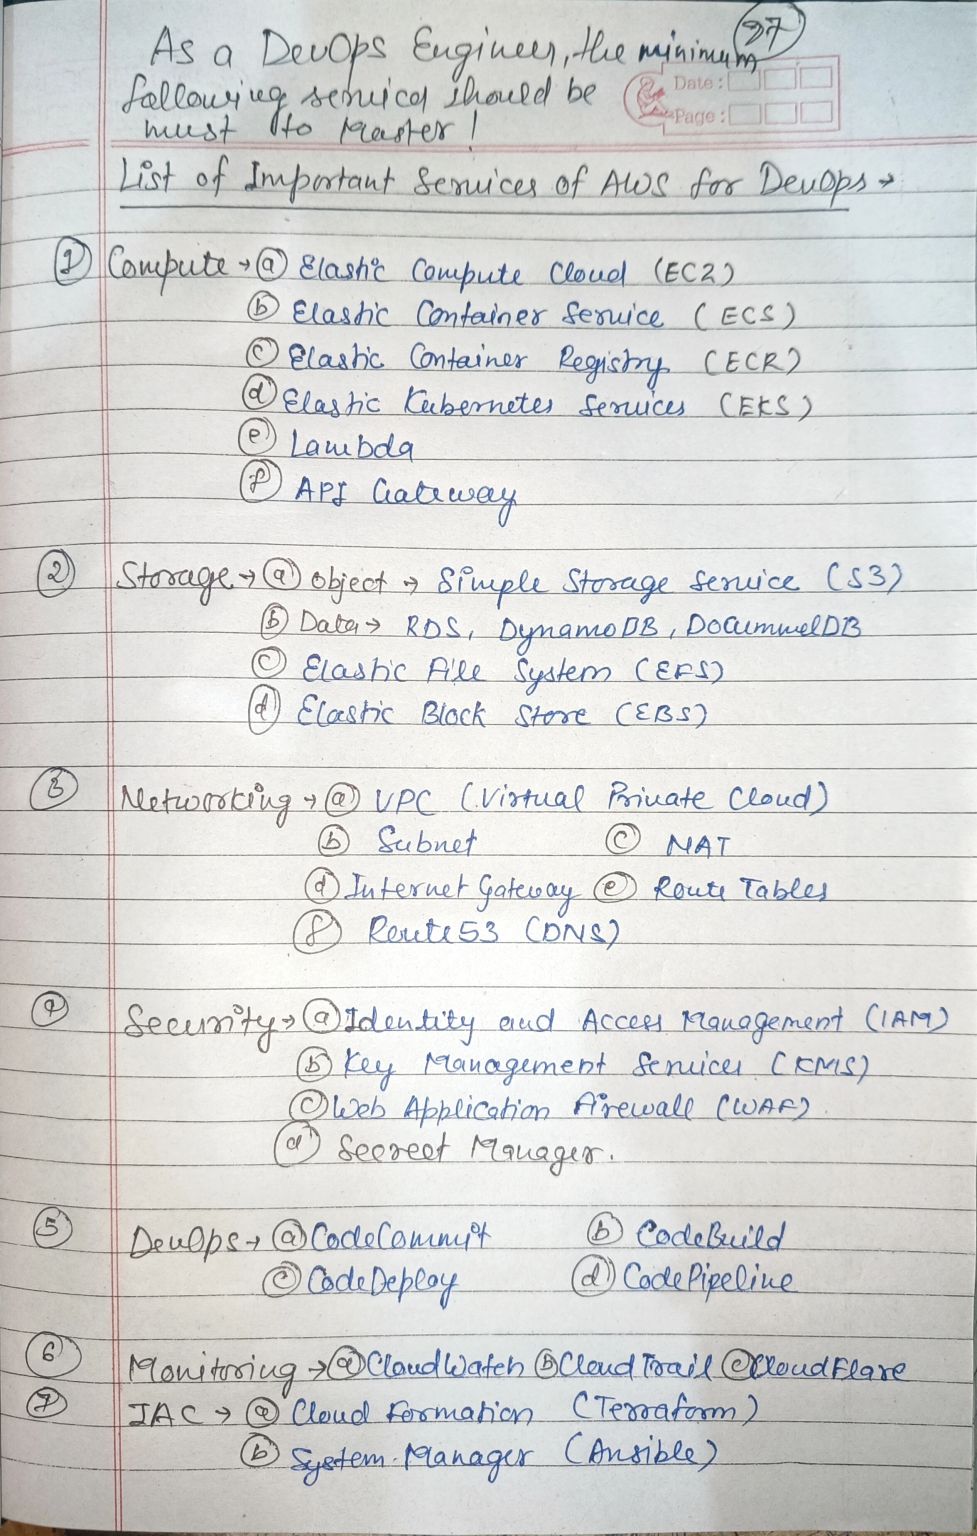 37
As a DevOps Engineer, the minimum
following services should be
must to Master!
Date:
Page:
List of Important Services of AWS for DevOps →
① Compute → ⓐ Elastic Compute Cloud (EC2)
ⓑ Elastic Container Service (ECS)
ⓒ Elastic Container Registry (ECR)
ⓓ Elastic Kubernetes Services (EKS)
ⓔ Lambda
ⓕ API Gateway
② Storage → ⓐ Object → Simple Storage Service (S3)
ⓑ Data → RDS, DynamoDB, DocummelDB
ⓒ Elastic File System (EFS)
ⓓ Elastic Block Store (EBS)
③ Networking → ⓐ VPC (Virtual Private Cloud)
ⓑ Subnet ⓒ NAT
ⓓ Internet Gateway ⓔ Route Tables
ⓕ Route 53 (DNS)
④ Security → ⓐ Identity and Access Management (IAM)
ⓑ Key Management Services (KMS)
ⓒ Web Application Firewall (WAF)
ⓓ Secreet Manager.
⑤ DevOps → ⓐ CodeCommit ⓑ CodeBuild
ⓒ CodeDeploy ⓓ CodePipeline
⑥ Monitoring → ⓐ CloudWatch ⓑ Cloud Trail ⓒ CloudFlare
⑦ IAC → ⓐ Cloud Formation (Terraform)
ⓑ System Manager (Ansible)